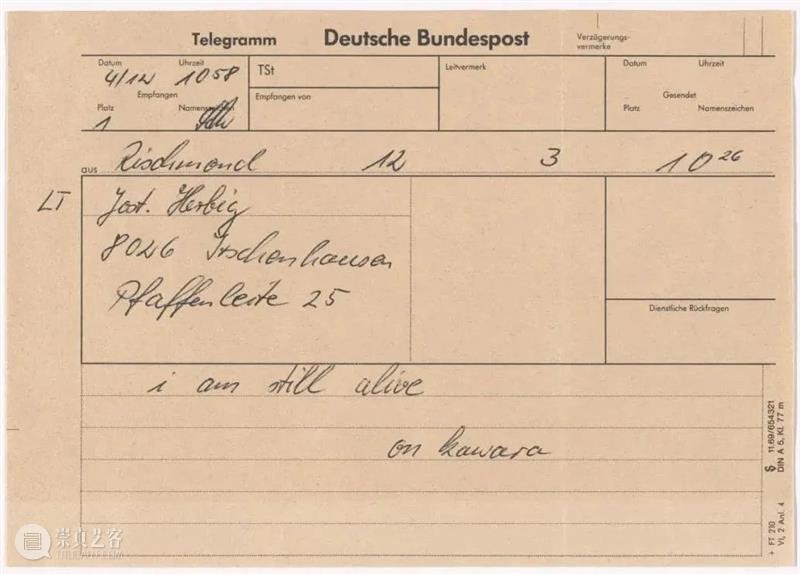 Telegramm Deutsche Bundespost Verzögerungs-
vermerke
Datum Uhrzeit TSt Leitvermerk Datum Uhrzeit
4/12 1058
Empfangen Empfangen von Gesendet
Platz Namenszeichen Platz Namenszeichen
1
aus Rischmond 12 3 10 26
LT Jost. Herbig
8026 Irschenhausen
Pfaffenleite 25
Dienstliche Rückfragen
i am still alive
on kawara
$ 11.69/654321
DIN A 5, Kl. 77 m
+ FT 210
VI, 2 Anl. 4
崇真艺客
TRUEART.COM